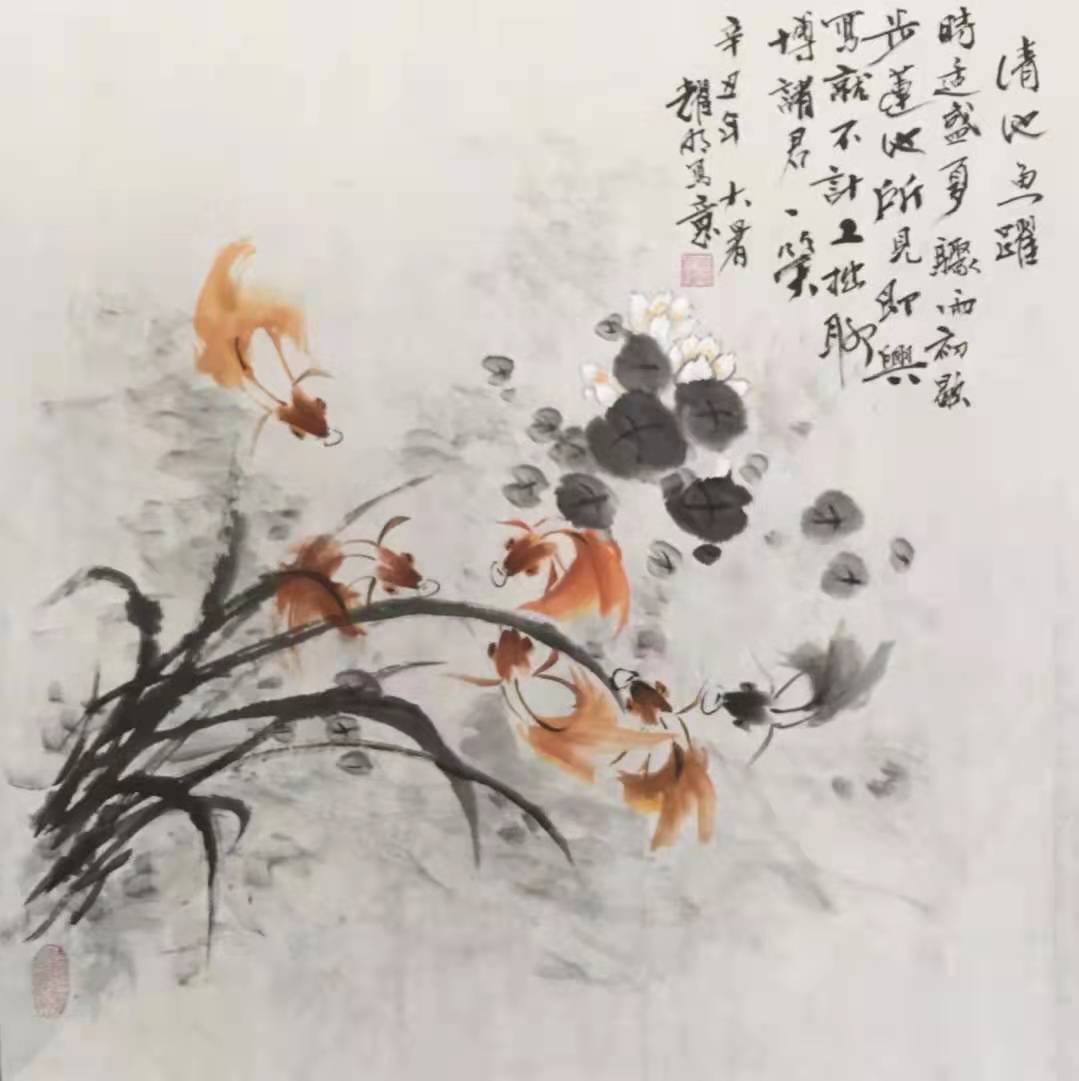 清池魚躍
時适盛夏驟雨初歇
步蓮池所見即興
寫就不計工拙聊
博諸君一笑
辛丑年大暑
耀明寫意